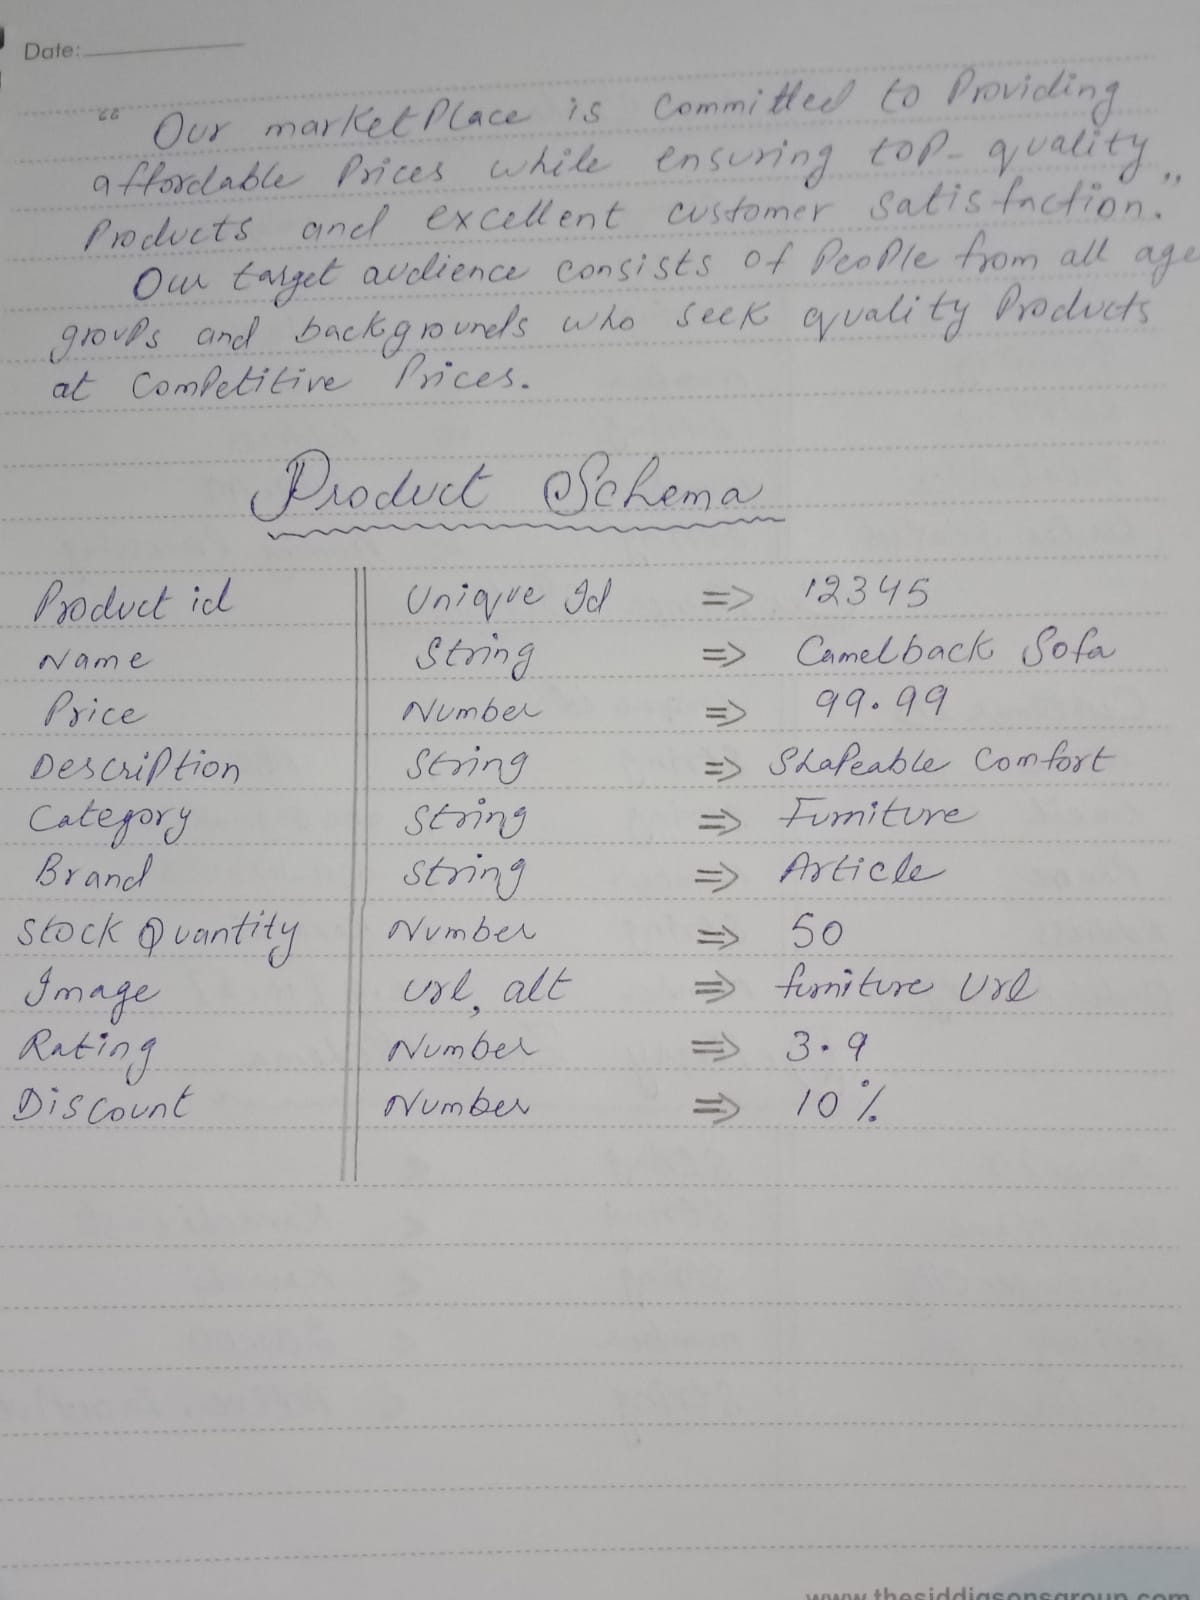 Date:
" Our marketPlace is Committed to Providing
affordable Prices while ensuring top-quality
Products and excellent customer satisfaction."
Our target audience consists of People from all age
groups and backgrounds who seek quality Products
at Competitive Prices.
Product Schema
Product id Unique Id => 12345
Name String => Camelback Sofa
Price Number => 99.99
Description String => Shapeable Comfort
Category String => Furniture
Brand String => Article
Stock Quantity Number => 50
Image url, alt => furniture Url
Rating Number => 3.9
Discount Number => 10%
www.thesiddiqsonsgroup.com